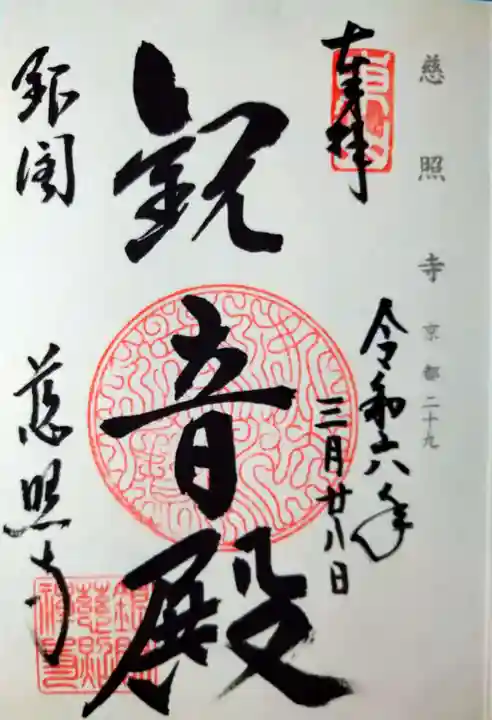 慈照寺 京都二十九
奉拝
令和六年
三月廿八日
観音殿
銀閣
慈照寺